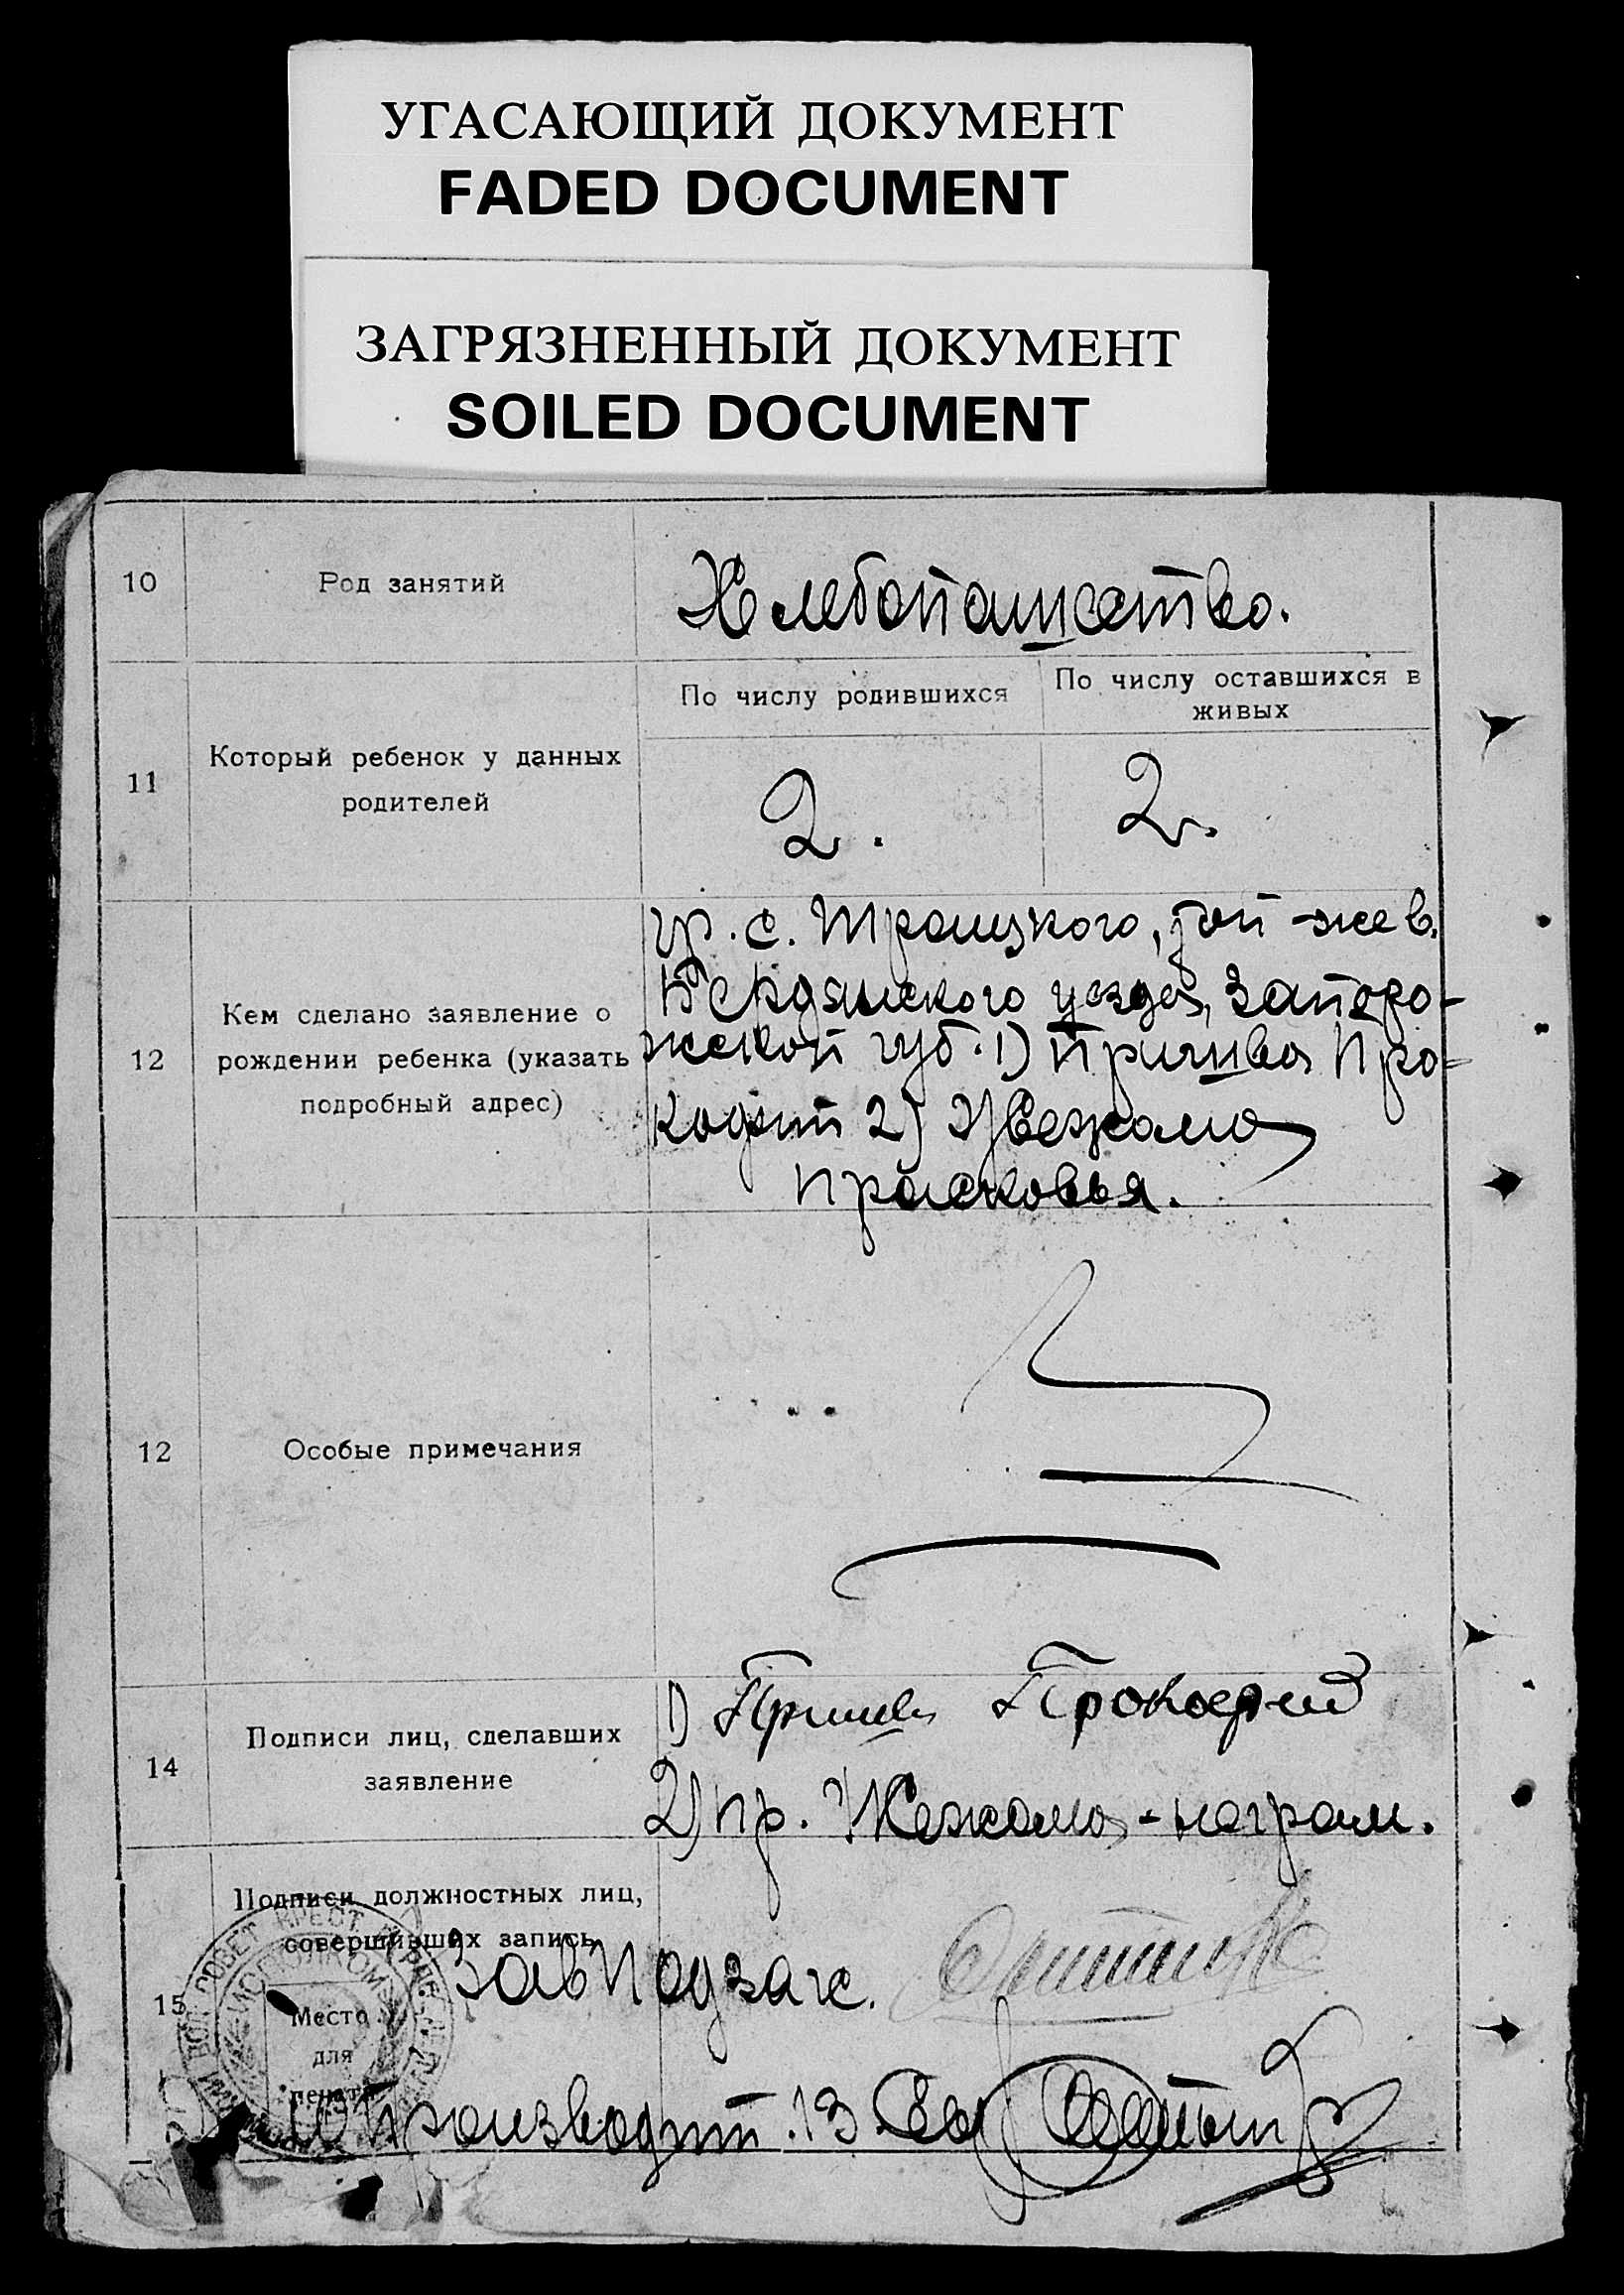 УГАСАЮЩИЙ ДОКУМЕНТ
FADED DOCUMENT
ЗАГРЯЗНЕННЫЙ ДОКУМЕНТ
SOILED DOCUMENT
10
Род занятий
Хлебопашество.
11
Который ребенок у данных
родителей
По числу родившихся
По числу оставшихся в
живых
2.
2.
12
Кем сделано заявление о
рождении ребенка (указать
подробный адрес)
гр. с. Троицкого, той-же в.
Бердянского уезда, Запоро-
жской губ. 1) Про-
кофий 2)
Прасковья.
12
Особые примечания
14
Подписи лиц, сделавших
заявление
1) Прокофий
2) Пр. - неграм.
15
Подписи должностных лиц,
совершивших запись
Место
для
печати
ЗавПодзагс.
Делопроизводит.